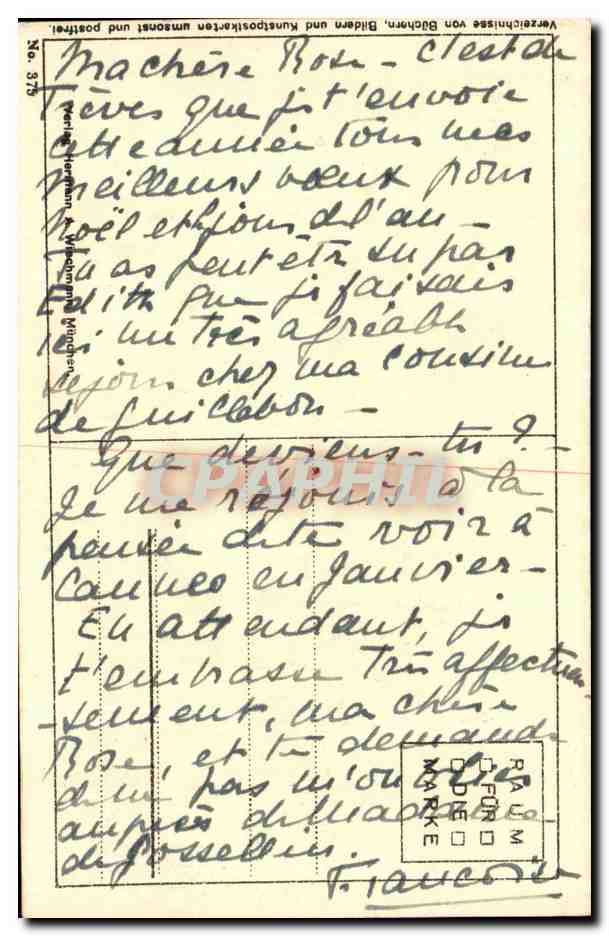 Verzeichnisse von Büchern, Bildern und Kunstpostkarten umsonst und postfrei.
No. 375
Verlag Hermann A. Wiechmann, München.
Ma chère Rose – C'est de
Trèves que je t'envoie
cette année tous mes
meilleurs vœux pour
Noël et le jour de l'an –
Tu as peut être su par
Edith que je faisais
ici un très agréable
séjour chez ma cousine
de Guillebon –
Que deviens-tu ? –
Je me réjouis à la
pensée de te voir à
Cannes en Janvier –
En attendant, je
t'embrasse très affectueu-
-sement, ma chère
Rose, et te demande
de ne pas m'oublier
auprès de Madame
de Gossellin.
Françoise
RAUM
FÜR
DIE
MARKE
CPAPHIL